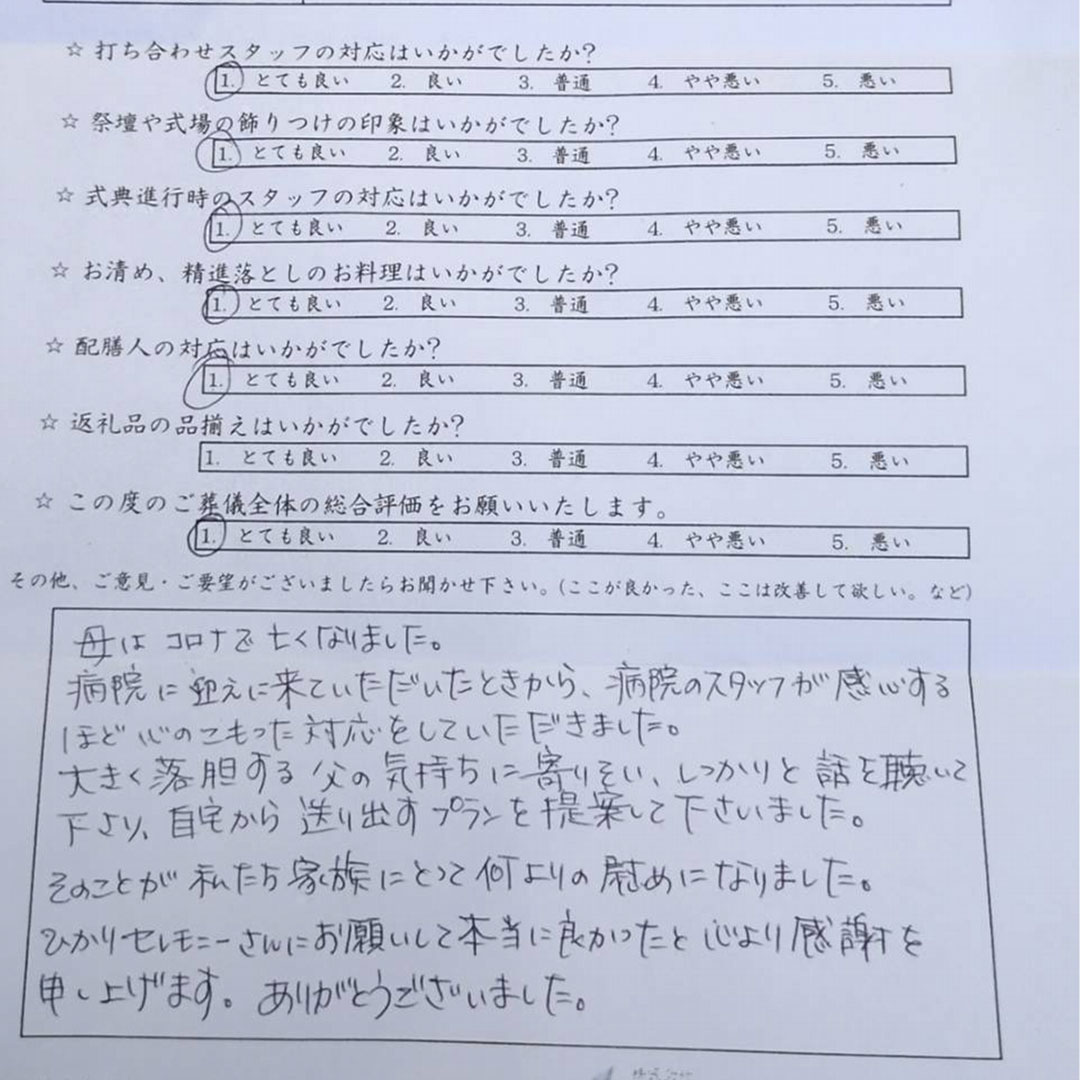 ☆ 打ち合わせスタッフの対応はいかがでしたか?
1. とても良い 2. 良い 3. 普通 4. やや悪い 5. 悪い
☆ 祭壇や式場の飾りつけの印象はいかがでしたか?
1. とても良い 2. 良い 3. 普通 4. やや悪い 5. 悪い
☆ 式典進行時のスタッフの対応はいかがでしたか?
1. とても良い 2. 良い 3. 普通 4. やや悪い 5. 悪い
☆ お清め、精進落としのお料理はいかがでしたか?
1. とても良い 2. 良い 3. 普通 4. やや悪い 5. 悪い
☆ 配膳人の対応はいかがでしたか?
1. とても良い 2. 良い 3. 普通 4. やや悪い 5. 悪い
☆ 返礼品の品揃えはいかがでしたか?
1. とても良い 2. 良い 3. 普通 4. やや悪い 5. 悪い
☆ この度のご葬儀全体の総合評価をお願いいたします。
1. とても良い 2. 良い 3. 普通 4. やや悪い 5. 悪い
その他、ご意見・ご要望がございましたらお聞かせ下さい。(ここが良かった、ここは改善して欲しい。など)
母は コロナで 亡くなりました。
病院に 迎えに来ていただいたときから、病院のスタッフが感心する
ほど 心のこもった 対応をしていただきました。
大きく落胆する 父の気持ちに寄りそい、しっかりと 話を聴いて
下さり、自宅から 送り出すプランを提案して下さいました。
そのことが 私たち家族にとって何よりの慰めになりました。
ひかりセレモニーさんにお願いして本当に良かったと 心より感謝を
申し上げます。ありがとうございました。